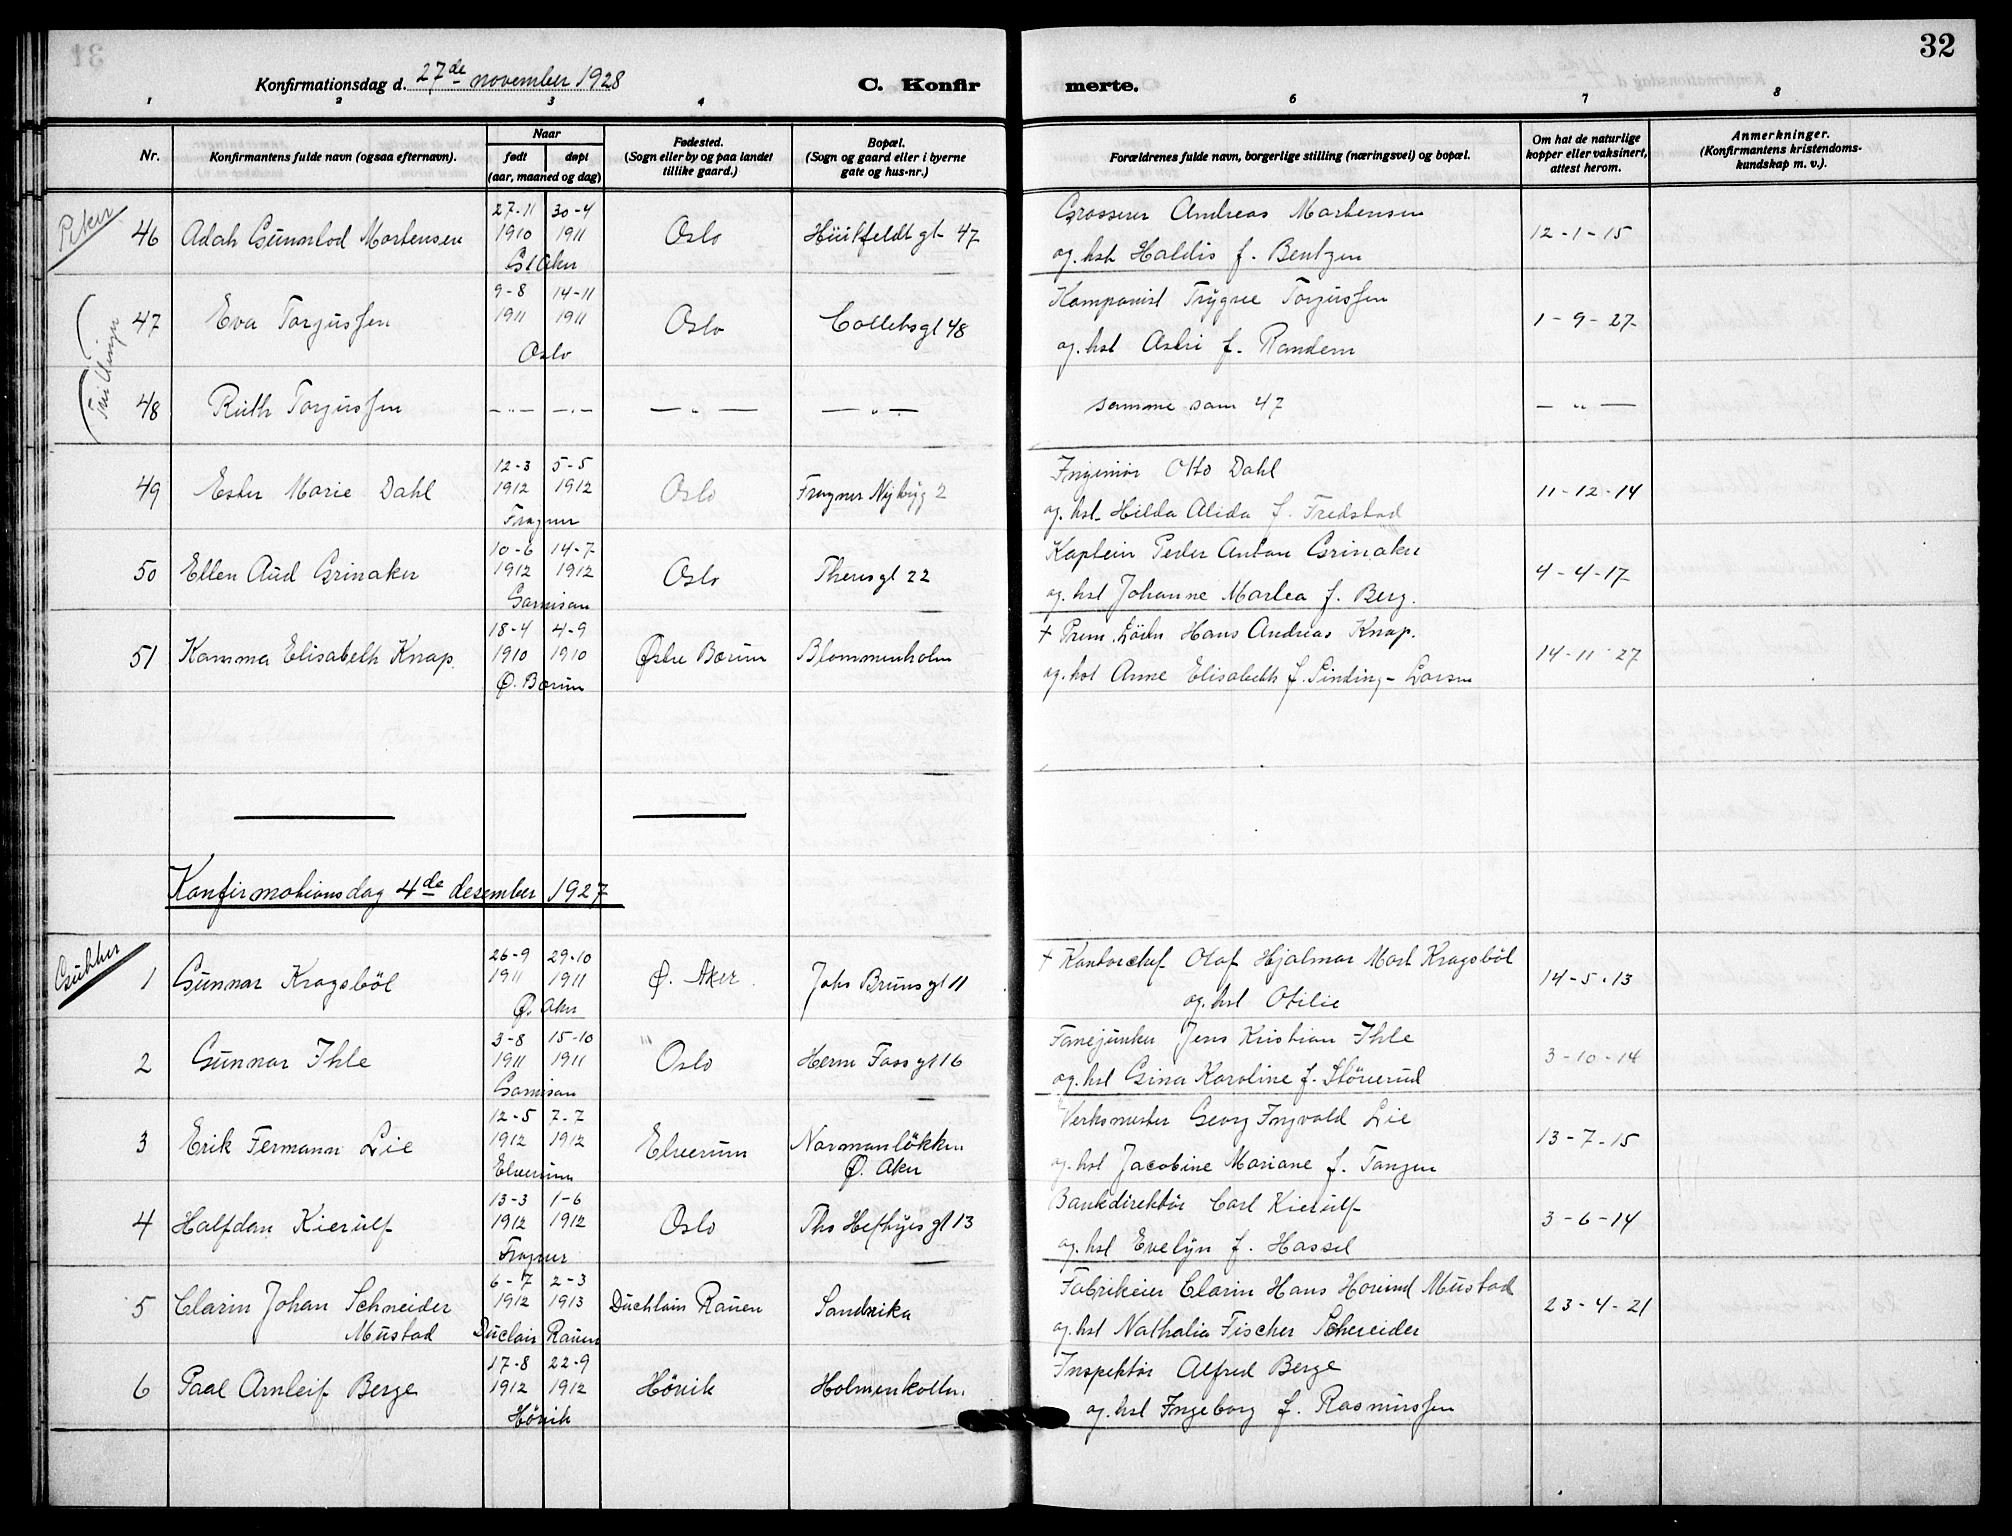 32
Konfirmationsdag d. 27de november 1928
C. Konfirmerte.
1 2 3 4 6 7 8
Nr.
Konfirmantens fulde navn (ogsaa efternavn).
Naar
født døpt
(aar, maaned og dag)
Fødested.
(Sogn eller by og paa landet
tillike gaard.)
Bopæl.
(Sogn og gaard eller i byerne
gate og hus-nr.)
Forældrenes fulde navn, borgerlige stilling (næringsvei) og bopæl.
Om hat de naturlige
kopper eller vaksinert,
attest herom.
Anmerkninger.
(Konfirmantens kristendoms-
kundskap m. v.).
Piker
46 Adah Gunnlod Mortensen 27-11 1910 30-4 1911 Gl Aker Oslo Hüitfeldt gt 47
Grosserer Andreas Martensen
og hst Haldis f. Bentzen
12-1-15
Trillinger
47 Eva Torjussen 9-8 1911 14-11 1911 Oslo Oslo Colletsgt 48
Komponist Trygve Torjussen
og. hst Astri f. Randem
1-9-27
48 Ruth Torjussen — " — — " — — " — — " —
samme som 47
— " —
49 Ester Marie Dahl 12-3 1912 5-5 1912 Frogner Oslo Frogner Nybyg 2
Ingeniør Otto Dahl
og. hst. Hilda Alida f. Fredstad
11-12-14
50 Ellen Aud Grinaker 10-6 1912 14-7 1912 Garnison Oslo Theresgt 22
Kaptein Peder Anton Grinaker
og. hst Johanne Martea f. Berg.
4-4-17
51 Kamma Elisabeth Knap. 18-4 1910 4-9 1910 Ø. Bærum Østre Bærum Blommenholm
+ Prem. Løitn Hans Andreas Knap.
og. hst Anne Elisabeth f. Sinding-Larsen
14-11-27
Konfirmationsdag 4de desember 1927
Gutter
1 Gunnar Kragsböl 26-9 1911 29-10 1911 Ø. Aker Ø. Aker Johs Brunsgt 11
+ Kontorchef Olaf Hjalmar Kragsböl
og. hst Otilie
14-5-13
2 Gunnar Ihle 3-8 1911 15-10 1911 Garnison Oslo Herm Fossgt 16
Fanejunker Jens Kristian Ihle
og. hst Gina Karoline f. Störerud
3-10-14
3 Erik Fermann Lie 12-5 1912 7-7 1912 Elverum Elverum Normanløkken
Ø. Aker
Verksmester Georg Ingvald Lie
og. hst Jacobine Mariane f. Tangen
13-7-15
4 Halfdan Kierulf 13-3 1912 1-6 1912 Frogner Oslo Ths Heftyesgt 13
Bankdirektør Carl Kierulf
og. hst Evelyn f. Hassel
3-6-14
5 Clarin Johan Schneider
Mustad 6-7 1912 2-3 1913 Duclair Rauen Duchlain Rauen Sandvika
Fabrikeier Clarin Hans Mustad
og. hst Nathalia Fischer Schneider
23-4-21
6 Paal Arnleif Berge 17-8 1912 22-9 1912 Hövik Hövik Holmenkollen
Inspektør Alfred Berge
og. hst Ingeborg f. Rasmussen